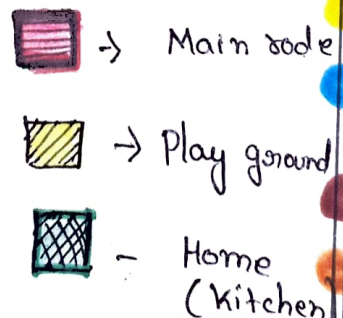 → Main rode
→ Play ground
- Home
(Kitchen